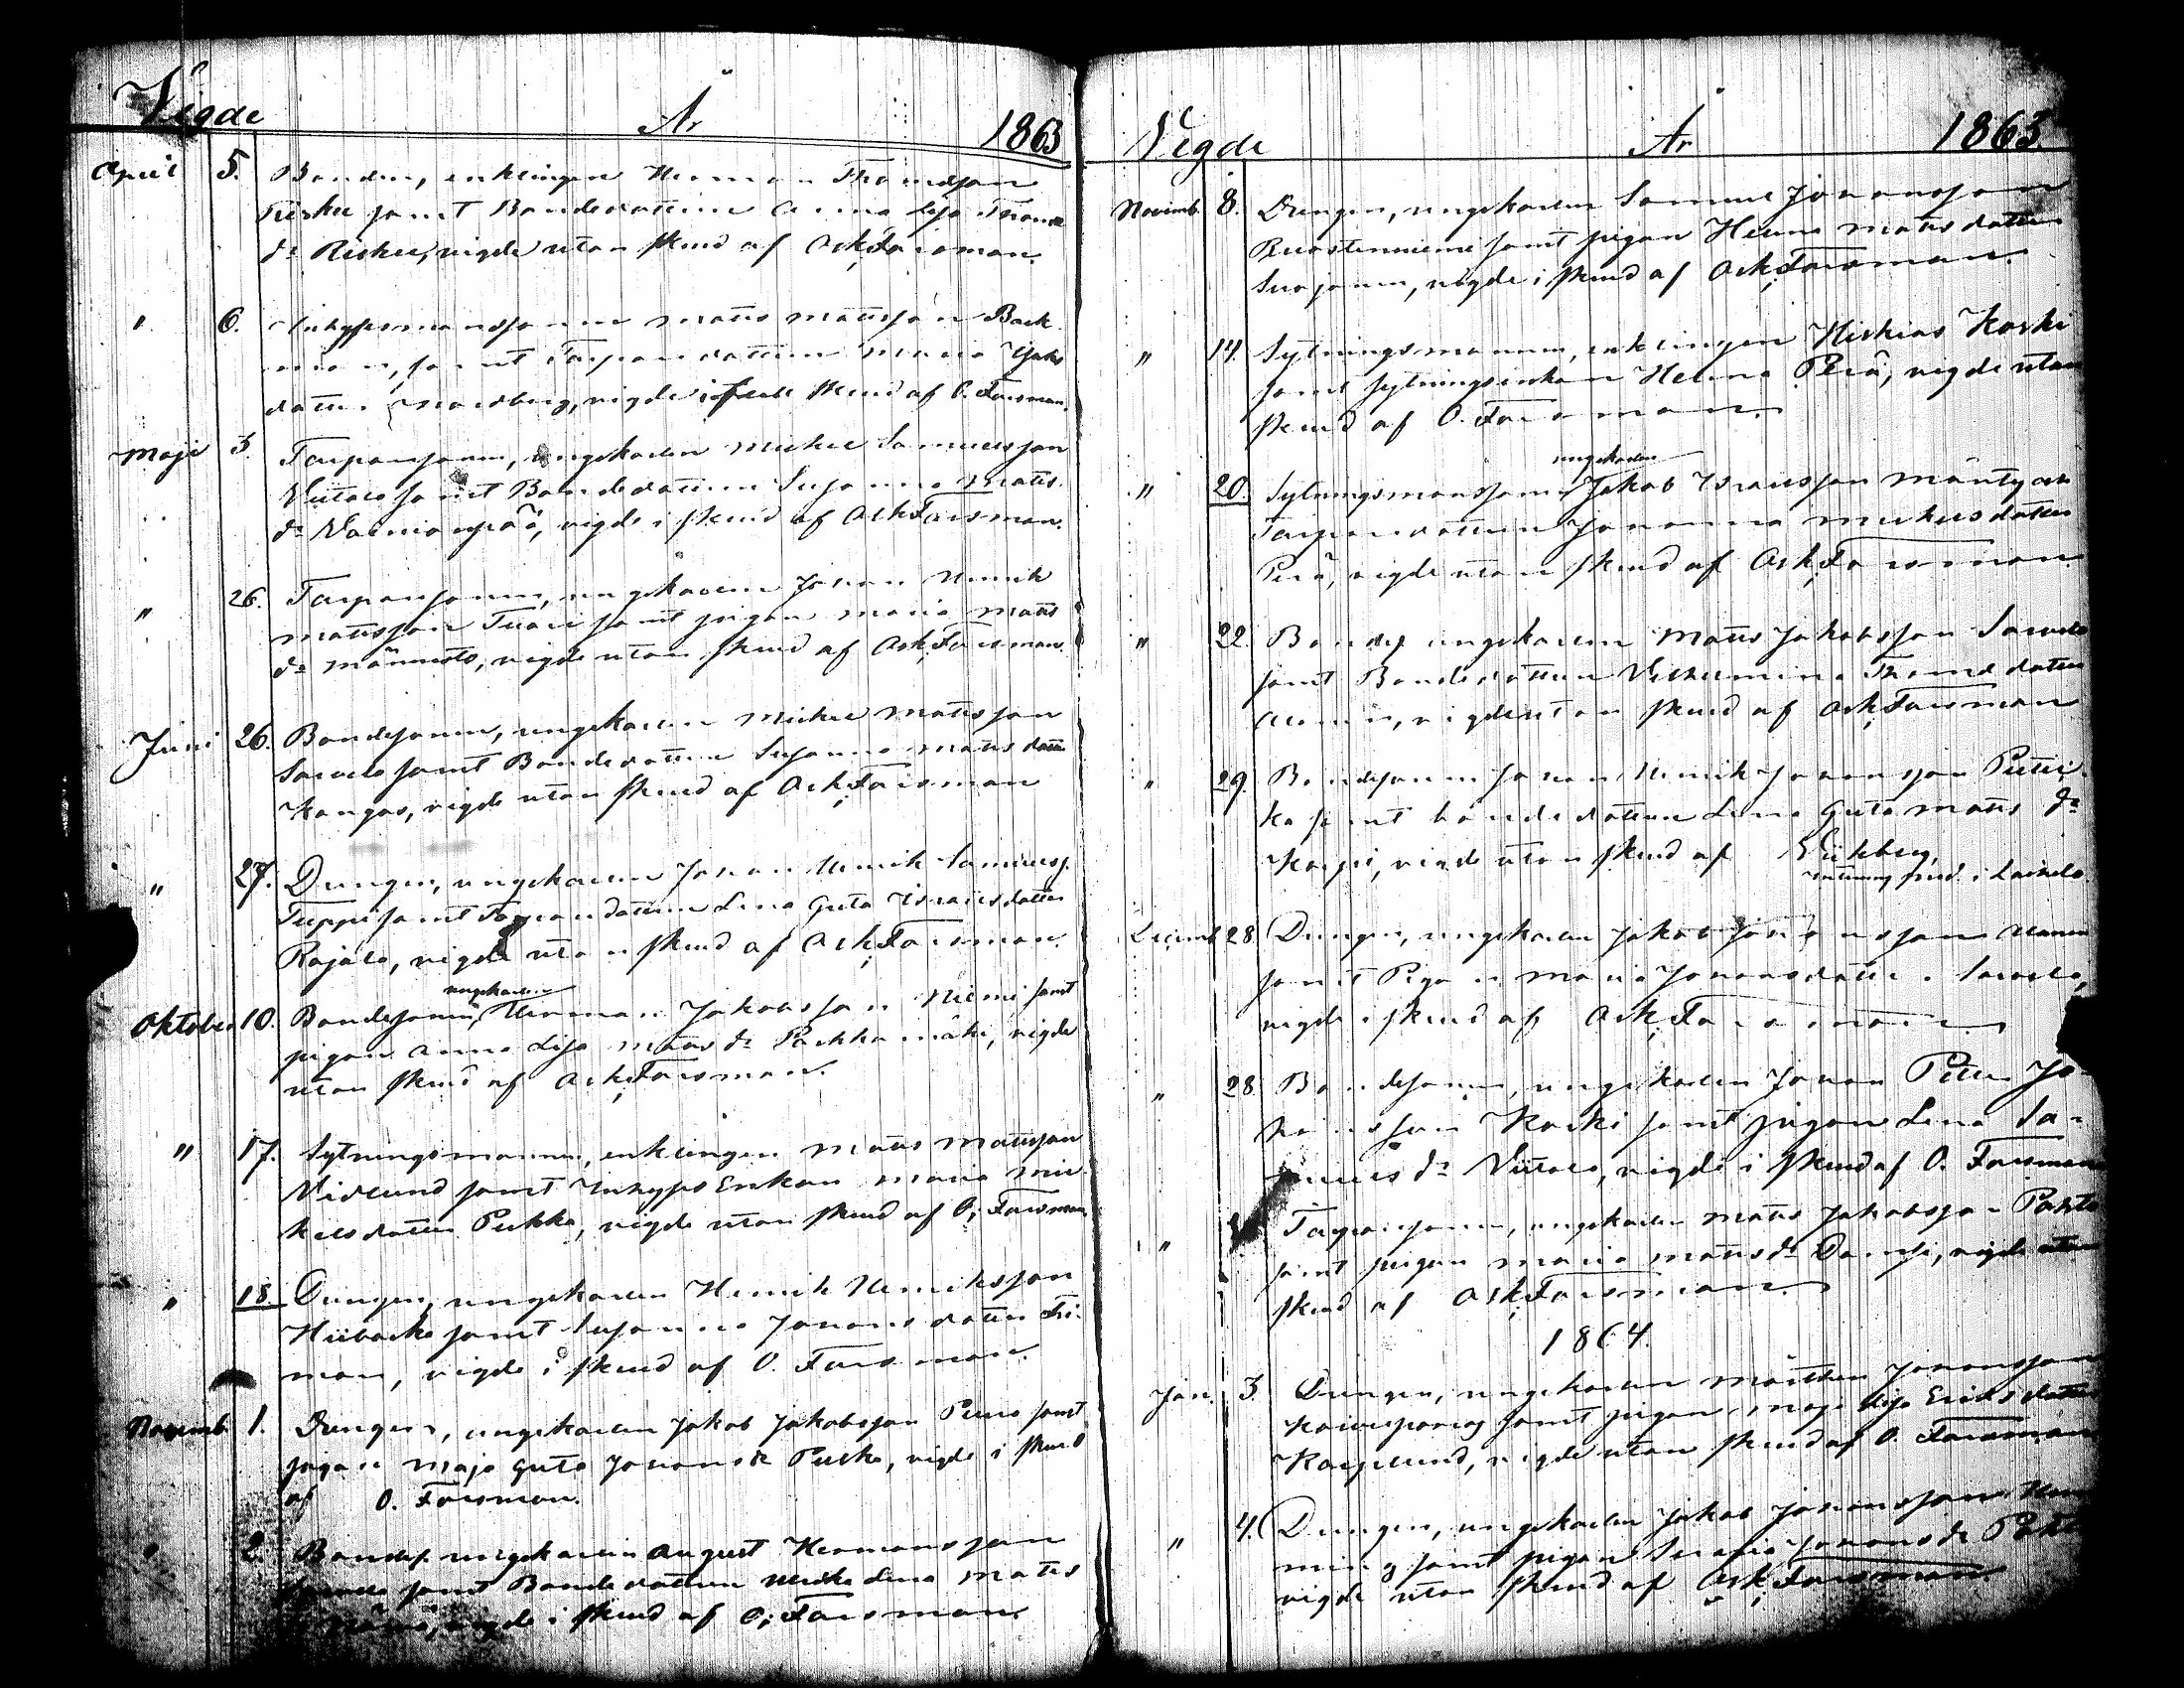 Vigde År 1863
April 5. Bonden, enklingen Herman Thomasson
Risku samt Bondedottren Anna Lisa Thomæ
dr Risku, vigde utan skrud af Ask, Forsman.
" 6. Inhysesmansonen Matts Mattsson Back
man, samt Torparedottren Maria Jakobs
dotter Nordberg, vigde i skrud af O. Forsman.
Maji 3. Torparsonen, ungkarlen Mickel Samuelsson
Viitala samt Bondedottren Susanna Matts
dr Vainionpää, vigde i skrud af Ask Forsman.
" 26. Torparsonen, ungkarlen Johan Henrik
Mattsson Tuuri samt pigan Maria Matts
dr Männistö, vigde utan skrud af Ask, Forsman.
Juni 26. Bondesonen, ungkarlen Mickel Mattsson
Sarvela samt Bondedottren Susanna Mattsdotter
Kangas, vigde utan skrud af Ask, Forsman
" 27. Drengen, ungkarlen Johan Henrik Samuelss.
Teppi samt Torparedottren Lena Greta Israelsdotter
Rajala, vigde utan skrud af Ask, Forsman.
Oktober 10. Bondesonen, ungkarlen Herman Jakobsson Niemi samt
pigan Anna Lisa Matts dr Porkkamäki, vigde
utan skrud af Ask, Forsman.
" 17. Sytningsmannen, enklingen Matts Mattsson
Vidlund samt Inhyses Enkan Maria Mic
kelsdotter Pukka, vigde utan skrud af O. Forsman
" 18. Drengen, ungkarlen Henrik Henriksson
Hiibacka samt Susanna Johansdotter Fri
man, vigde i skrud af O. Forsman.
Novemb. 1. Drengen, ungkarlen Jakob Jakobsson Peura samt
pigan Maja Greta Johans dr Puska, vigde i skrud
af O. Forsman.
" 2. Bondes. ungkarlen August Hermansson
samt Bondedottren Lena Matts
vigde i skrud af O. Forsman
Vigde År 1863.
Novemb. 8. Drengen, ungkarlen Samuel Johansson
Ruostenniemi samt pigan Helena Mattsdotter
Suojanen, vigde i skrud af Ask, Forsman.
" 14. Sytningsmannen, enklingen Hiskias Koski
samt sytningsenkan Helena Perä, vigde utan
skrud af O. Forsman.
" 20. Sytningsmanssonen, ungkarlen Jakob Israelsson Mäntyoch
Torparedottren Johanna Mickelsdotter
Perä, vigde utan skrud af Ask, Forsman.
" 22. Bondes. ungkarlen Matts Jakobsson Sarvela
samt Bondedottren Vilhelmina Thomædotter
Alanen, vigde utan skrud af Ask, Forsman
" 29. Bondesonen Johan Henrik Johansson Pitkä
ka samt bondedottren Lena Greta Matts dr
Karpi, vigde utan skrud af Vikberg,
i Laihela.
Decemb. 28. Drengen, ungkarlen Jakob Johansson Alanen
samt Pigan Maria Johansdotter Sarvela,
vigde i skrud af Ask, Forsman
" 28. Bondesonen, ungkarlen Johan Petter Jo
hansson Koski samt pigan Lena Sa-
muels dr Viitala, vigde i skrud af O. Forsman
" Torparsonen, ungkarlen Matts Jakobsson Pohto
samt pigan Maria Matts dr vigde utan
skrud af Ask, Forsman.
1864.
Jan. 3. Drengen, ungkarlen Mårthen Johansson
samt pigan Maja Lisa Eriksdotter
Karplund, vigde utan skrud af O. Forsman
" 4. Drengen, ungkarlen Jakob Johansson Hem
ming samt pigan Serafia Johans dr
vigde utan skrud af Ask, Forsman